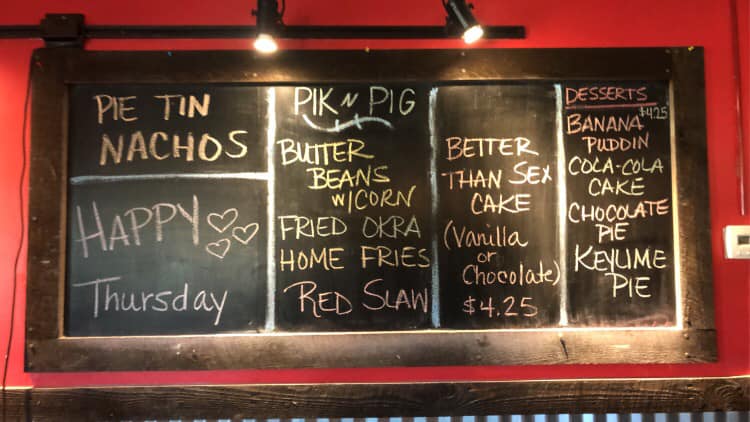 PIE TIN
NACHOS
HAPPY
Thursday
PIK N PIG
BUTTER
BEANS
W/CORN
FRIED OKRA
HOME FRIES
RED SLAW
BETTER
THAN SEX
CAKE
(Vanilla
or
Chocolate)
$4.25
DESSERTS
$4.25
BANANA
PUDDIN
COLA-COLA
CAKE
CHOCOLATE
PIE
KEYLIME
PIE